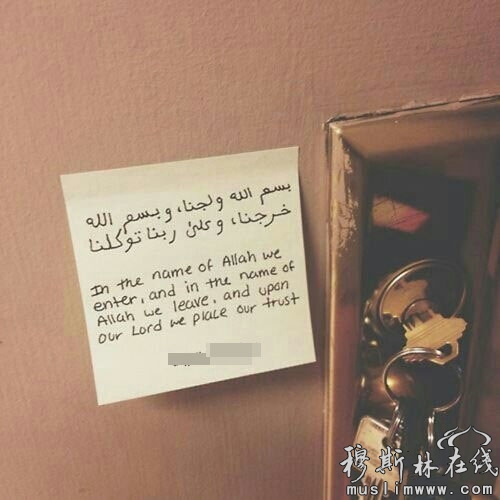 بسم الله ولجنا، وبسم الله
خرجنا، وعلى ربنا توكلنا
In the name of Allah we
enter, and in the name of
Allah we leave, and upon
our Lord we place our trust
穆斯林在线
muslimwww.com